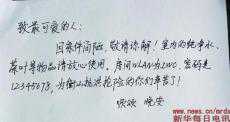 致最可爱的人：
因条件简陋，敬请谅解！室内的纯净水、
茶叶等物品请放心使用。房间WLAN为LWC，密码是
12345678，为衡山抗洪抢险的你们辛苦了！
晚安
www.news.cn/mrdx
新华每日电讯